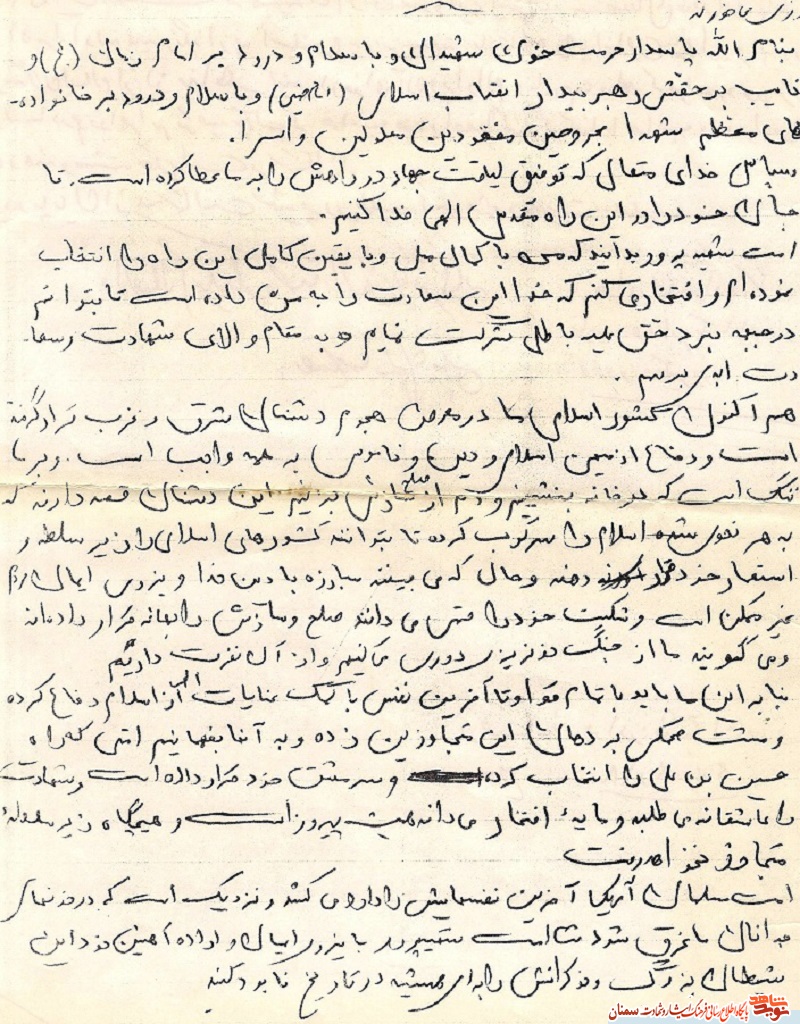 بنام الله پاسدار حرمت خون شهیدان و با سلام و درود بر امام زمان (عج) و
نایب برحقش رهبر بیدار انقلاب اسلامی (امام خمینی) و با سلام و درود بر خانواده‌
های معظم شهدا مجروحین مفقودین معلولین و اسرا.
و سپاس خدای متعال که توفیق لیاقت جهاد در راهش را به ما عطا کرده است. تا
جان خود را در این راه مقدس الهی فدا کنیم.
امت شهید پرور بدانید که من با کمال میل و با یقین کامل این راه را انتخاب
نموده‌ام و افتخار می کنم که خدا این سعادت را به من داده است تا بتوانم
در جبهه نبرد حق علیه باطل شرکت نمایم و به مقام والای شهادت و سعا
دت ابدی برسم.
هم اکنون کشور اسلامی ما در معرض هجوم دشمنان شرق و غرب قرار گرفته
است و دفاع از میهن اسلامی و دین و ناموس به همه واجب است. و بر ما
ننگ است که در خانه بنشینیم و دم از صلح و سازش بزنیم این دشمنان قصد دارند که
به هر نحوی شده اسلام را سرکوب کرده تا بتوانند کشورهای اسلامی را زیر سلطه و
استعمار خود قرار دهند و حال که می بینند مبارزه با دین خدا و نیروی ایمان مردم
غیر ممکن است و شکست خود را حتمی می دانند صلح و سازش را بهانه قرار داده‌اند
و می گویند ما از جنگ و خونریزی دوری می کنیم و از آن نفرت داریم
بنابراین ما باید با تمام قوا و تا آخرین نفس با کمک عنایات الهی از اسلام دفاع کرده
و مشت محکمی بر دهان این متجاوزین زده و به آنها بفهمانیم امتی که راه
حسین بن علی را انتخاب کرده و سرمشق خود قرار داده است و شهادت
را عاشقانه می طلبد و مایهٔ افتخار می داند همیشه پیروز است و هیچگاه زیر سلطهٔ
متجاوز نخواهد رفت
امت مسلمان آمریکا آخرین نفسهایش را دارد می کشد و نزدیک است که در خونهای
جوانان ما غرق شود شما امت شهیدپرور با نیروی ایمان و اراده آهنین خود این
شیطان بزرگ و نوکرانش را برای همیشه در تاریخ نابود کنید
نوید شاهد
پایگاه اطلاع رسانی فرهنگ ایثار و شهادت سمنان